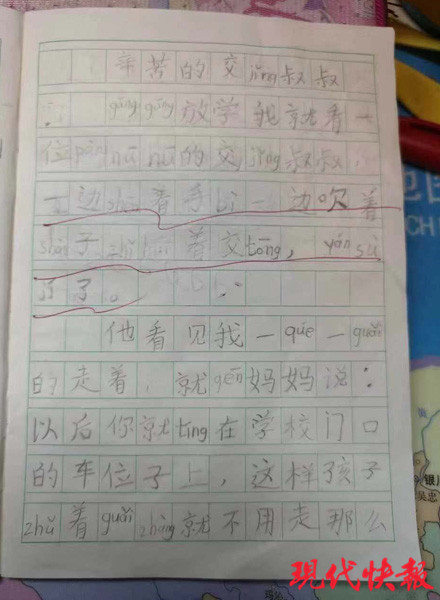 辛苦的交jǐng叔叔
gāng gāng放学 我就看一
位 的交jǐng叔叔,
一边 着手bì一边吹着
shào子zhǐ huī着交tōng, yán sù
了。
他看见我一qué一guǎi
的走着,就gēn妈妈说:
以后你就tíng在学校门口
的车位子上,这样孩子
zhǔ着guǎi zhàng就不用走那么
现代快報
CH
吴忠